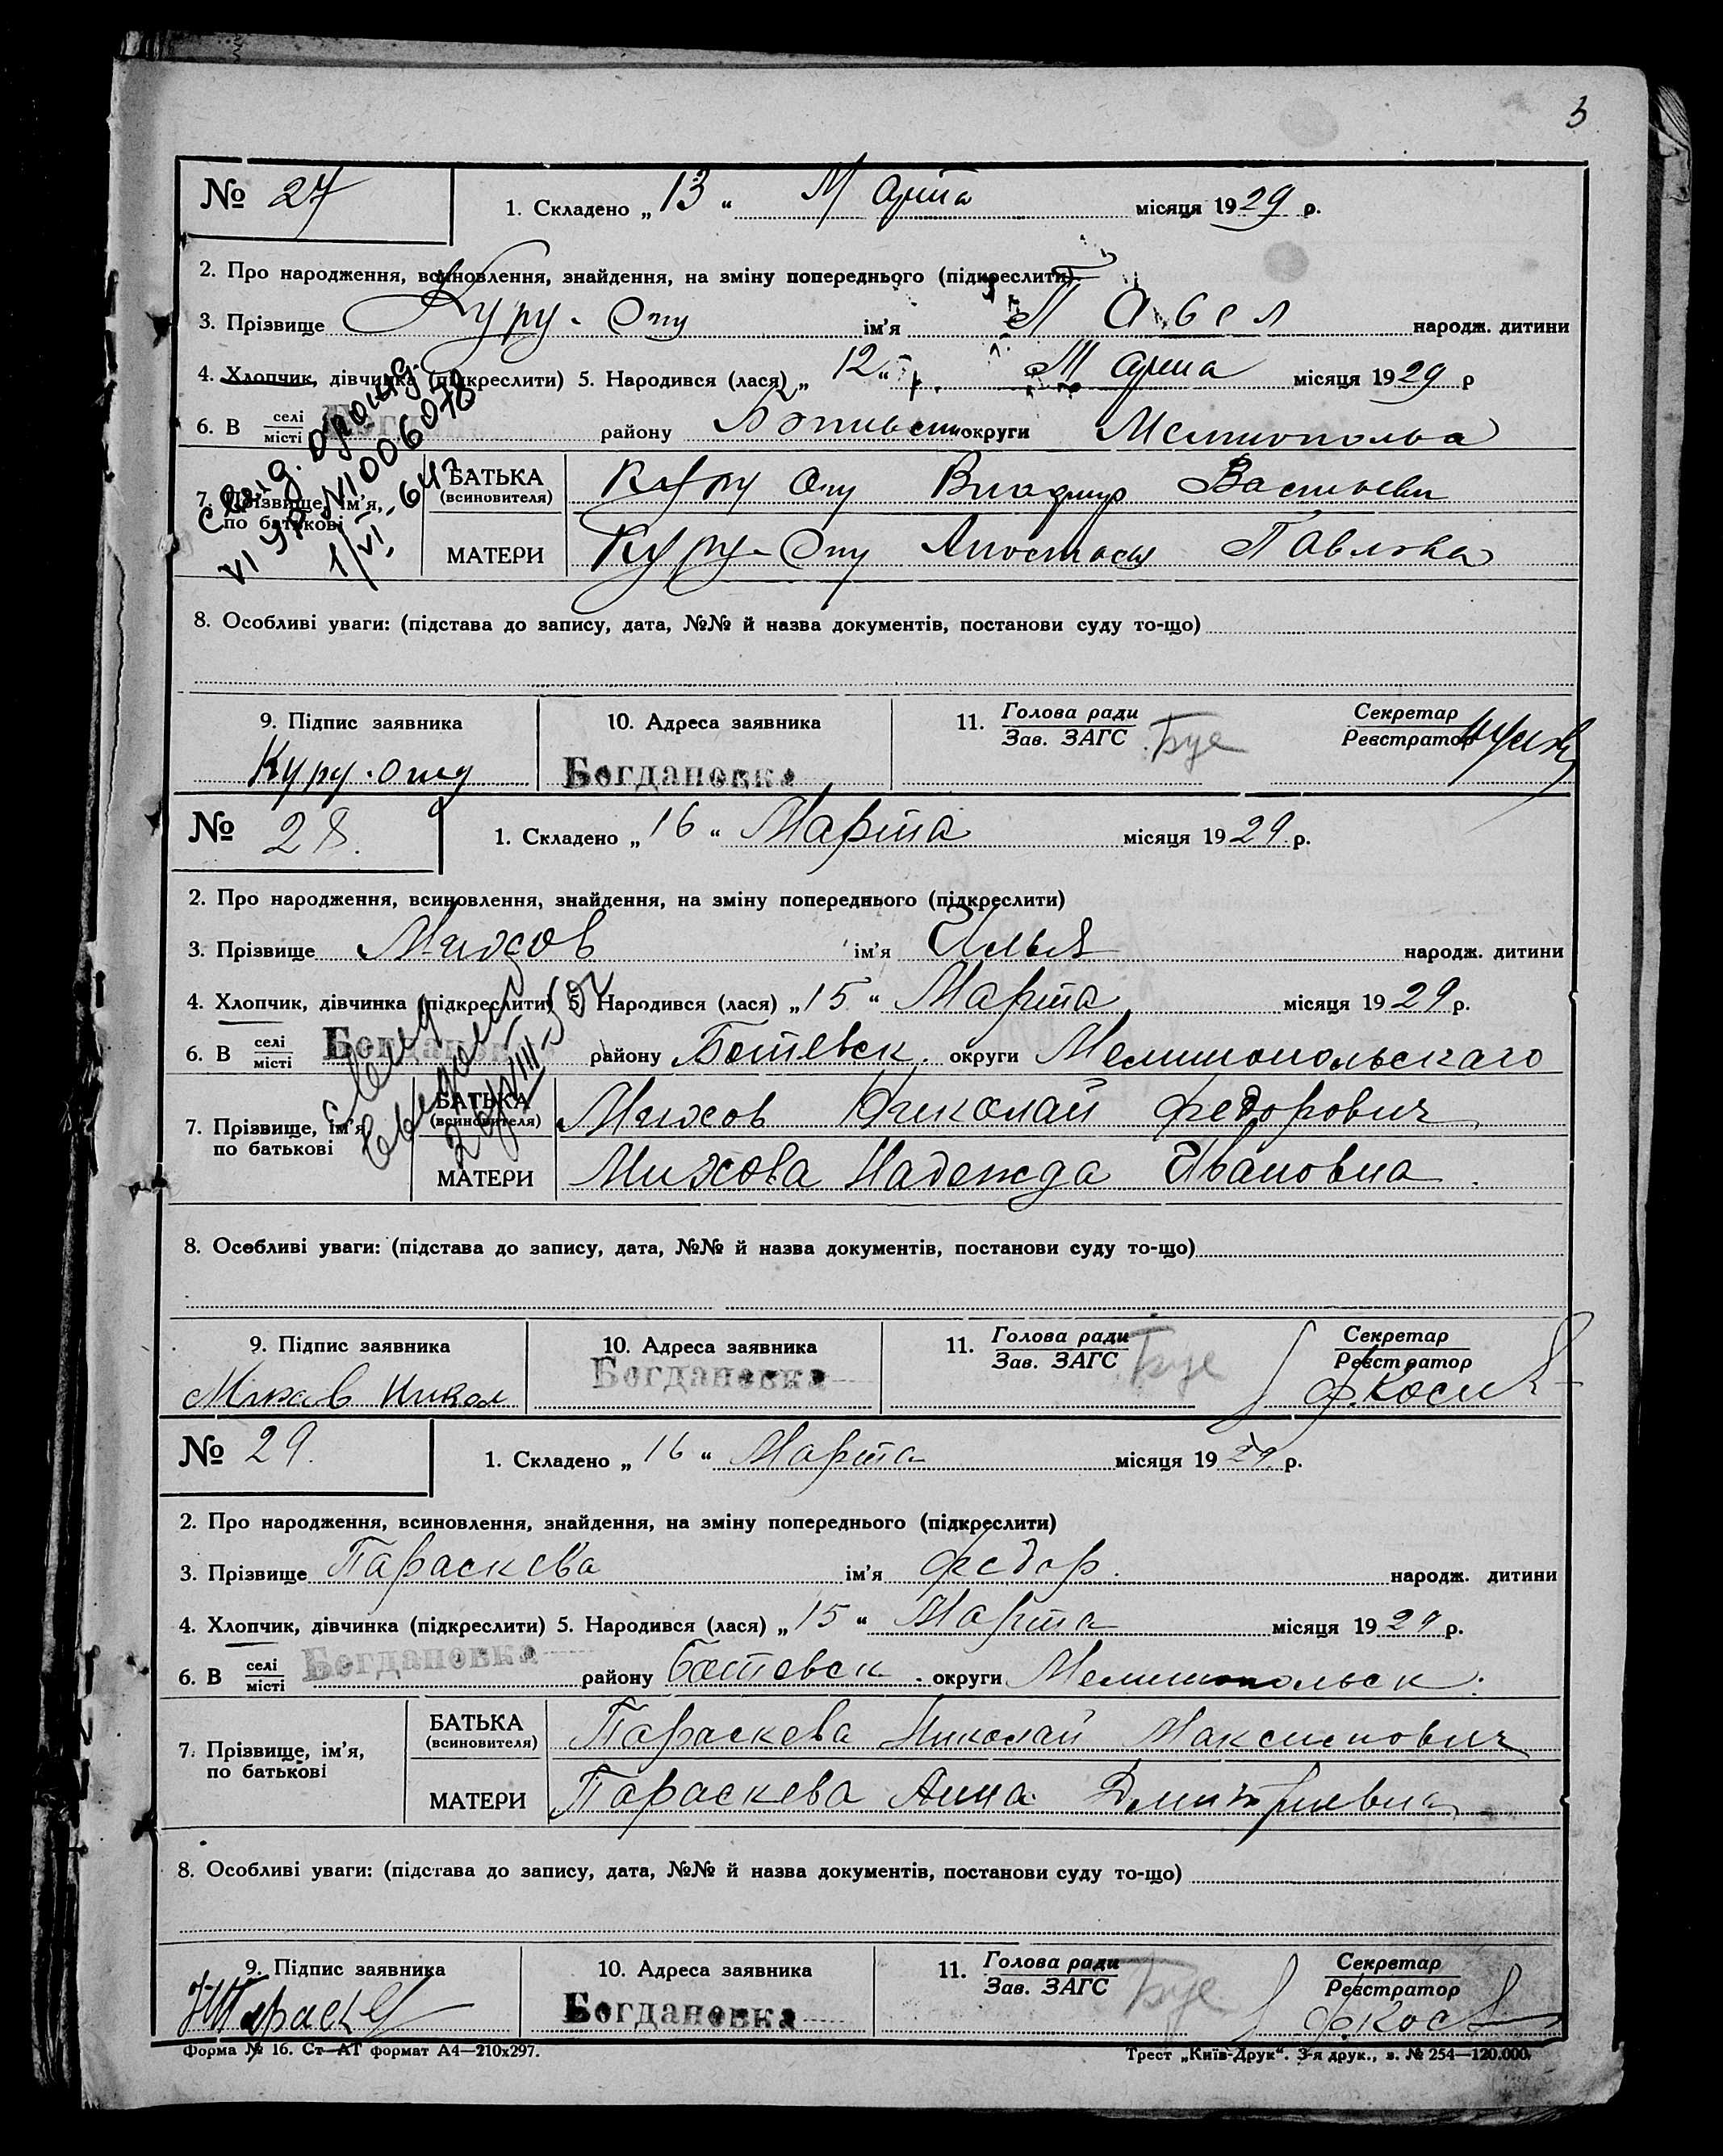 3
№ 27
1. Складено „ 13 “ Марта місяця 1929 р.
2. Про народження, всиновлення, знайдення, на зміну попереднього (підкреслити)
3. Прізвище Куру-Опу ім'я Павел народж. дитини
4. Хлопчик, дівчинка (підкреслити) 5. Народився (лася) „ 12 “ Марта місяця 1929 р
6. В селі місті району округи
7. Прізвище, ім'я, по батькові
№ 006078
БАТЬКА (всиновителя) Куру Опу Владимир
МАТЕРИ Куру-Опу Павловна
8. Особливі уваги: (підстава до запису, дата, №№ й назва документів, постанови суду то-що)
9. Підпис заявника 10. Адреса заявника 11. Голова ради Зав. ЗАГС Секретар Реєстратор
Богдановка
№ 28.
1. Складено „ 16 “ Марта місяця 1929 р.
2. Про народження, всиновлення, знайдення, на зміну попереднього (підкреслити)
3. Прізвище Михов ім'я Илья народж. дитини
4. Хлопчик, дівчинка (підкреслити) 5. Народився (лася) „ 15 “ Марта місяця 1929 р.
6. В селі місті Богдановка району Ботевск. округи Мелитопольскаго
7. Прізвище, ім'я, по батькові
БАТЬКА (всиновителя) Михов Николай Федорович
МАТЕРИ Михова Надежда Ивановна
8. Особливі уваги: (підстава до запису, дата, №№ й назва документів, постанови суду то-що)
9. Підпис заявника 10. Адреса заявника 11. Голова ради Зав. ЗАГС Секретар Реєстратор
Михов Никол Богдановка
№ 29.
1. Складено „ 16 “ Марта місяця 1929. р.
2. Про народження, всиновлення, знайдення, на зміну попереднього (підкреслити)
3. Прізвище Параскева ім'я Федор. народж. дитини
4. Хлопчик, дівчинка (підкреслити) 5. Народився (лася) „ 15 “ Марта місяця 1929 р.
6. В селі місті Богдановка району Ботевск. округи Мелитопольск.
7. Прізвище, ім'я, по батькові
БАТЬКА (всиновителя) Параскева Николай Максимович
МАТЕРИ Параскева Анна Дмитриевна
8. Особливі уваги: (підстава до запису, дата, №№ й назва документів, постанови суду то-що)
9. Підпис заявника 10. Адреса заявника 11. Голова ради Зав. ЗАГС Секретар Реєстратор
Богдановка
Форма № 16. Ст—АТ формат А4—210х297. Трест „Київ-Друк“. 3-я друк., з. № 254—120.000.